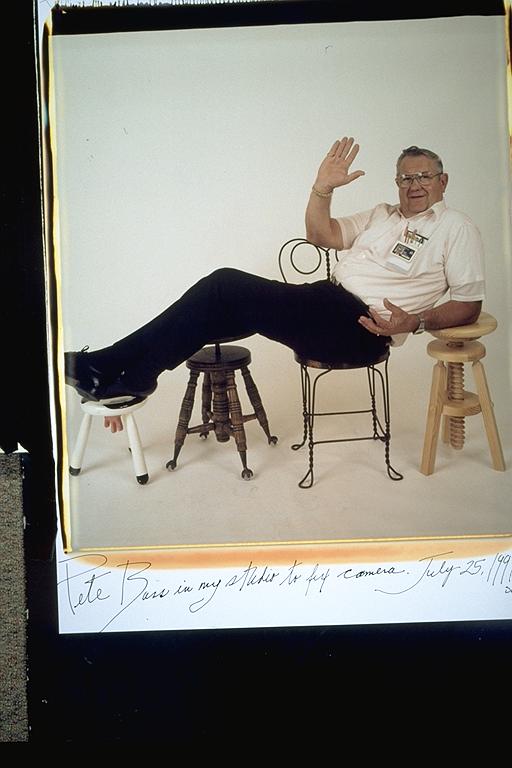 Pete Bass in my studio to fix camera. July 25, 1991